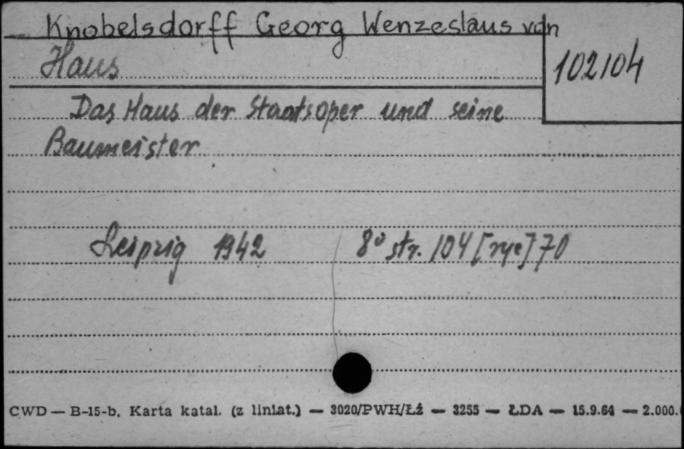 Knobelsdorff Georg Wenzeslaus von
Haus
102104
Das Haus der Staatsoper und seine
Baumeister
Leipzig 1942 8° str. 104 [ryc] 70
CWD — B-15-b. Karta katal. (z liniat.) — 3020/PWH/Łź — 3255 — ŁDA — 15.9.64 — 2.000.